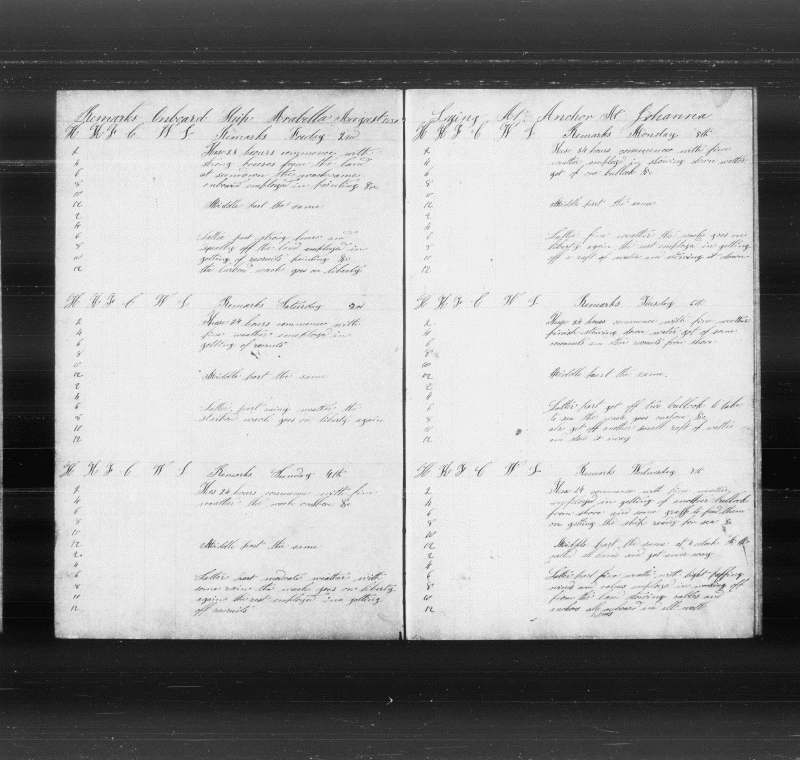 Remarks Onboard Ship Arabella August
H K F C W L Remarks Friday 2nd
2 These 24 hours commence with
4 strong breeses from the land
6 at sundown the wach came
8 onboard employed in painting &c
10
12 Middle part the same
2
4
6 Latter part strong breeses and
8 squally off the land employed in
10 getting of recruits painting &c
12 the larbord wach goes on liberty
H K F C W L Remarks Saturday 3rd
2 These 24 hours commence with
4 fine weather employed in
6 getting of recruits
8
10
12 Middle part the same
2
4
6 Latter part weather the
8 starbord wach goes on liberty again
10
12
H K F C W L Remarks Sunday 4th
2 These 24 hours commence with fine
4 weather the wach onshore &c
6
8
10
12 Middle part the same
2
4
6 Latter part weather with
8 some rains the wach goes on liberty
10 again the rest employed in getting
12 off recruits
Laying At Anchor At Johanna
H K F C W L Remarks Monday 5th
2 These 24 hours commence with fine
4 weather employed in stowing down watter
6 got of one bullock &c
8
10
12 Middle part the same
2
4
6 Latter fine weather the wach goes on
8 liberty again the rest employed in getting
10 off a raft of water and stowing it down
12
H K F C W L Remarks Tuesday 6th
2 These 24 hours commence with fine weather
4 finish stowing down water got of some
6 cocoanuts and other recruits from shore
8
10
12 Middle part the same
2
4
6 Latter part got off two bullock to take
8 to sea the wach goes onshore &c
10 also got off another small raft of watter
12 and stow it away
H K F C W L Remarks Wednesday 7th
2 These 24 commence with fine weather
4 employed in getting of another bullock
6 from shore and some grass to feed them
8 on getting the ship ready for sea &c
10
12 Middle part the same at 4 oclock
2 all hands and got under way
4
6 Latter part fine weather with light baffling
8 winds and calms employed in working off
10 from the land stowing cables and
12 anchors all onboard and all well